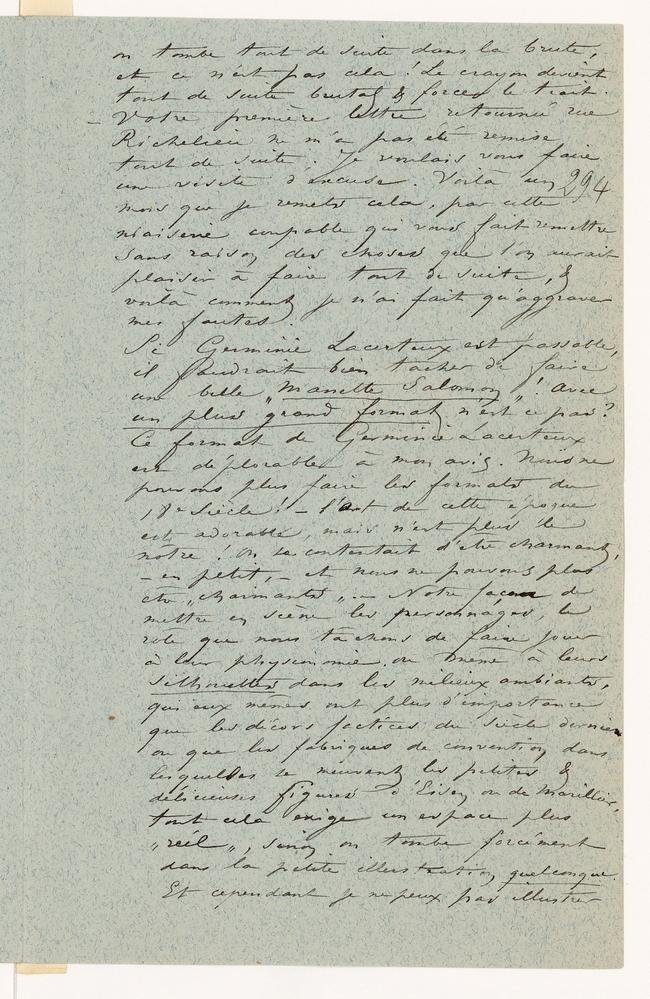 on tombe tout de suite dans la brute,
et ce n'est pas cela ! Le crayon devient
tout de suite brutal & force le trait.
– Votre première lettre retournée rue
Richelieu ne m'a pas été remise
tout de suite. Je voulais vous faire
une visite d'excuse. Voilà un
294
mois que je remets cela, par cette
niaiserie coupable qui vous fait remettre
sans raison des choses que l'on aurait
plaisir à faire tout de suite, &
voilà comment je n'ai fait qu'aggraver
mes fautes.
Si Germinie Lacerteux est passable,
il faudrait bien tacher de faire
une belle „Manette Salomon" ! avec
un plus grand format, n'est ce pas ?
Ce format de Germinie Lacerteux
est déplorable à mon avis. Nous ne
pouvons plus faire les formats du
18e siècle ! – l'art de cette époque
est adorable, mais n'est plus le
notre ! On se contentait d'être charmant,
– en petit, – et nous ne pouvons plus
être „charmants". – Notre façon de
mettre en scène les personnages, le
rôle que nous tâchons de faire jouer
à leur physionomie ou même à leurs
silhouettes dans les milieux ambiants,
qui eux mêmes ont plus d'importance
que les décors factices du siècle dernier
ou que les fabriques de convention dans
lesquelles se meuvent les petites &
délicieuses figures d'Eisen ou de Marillier,
tout cela exige un espace plus
„réel", sinon on tombe forcément
dans la petite illustration quelconque.
Et cependant je ne peux pas illustrer